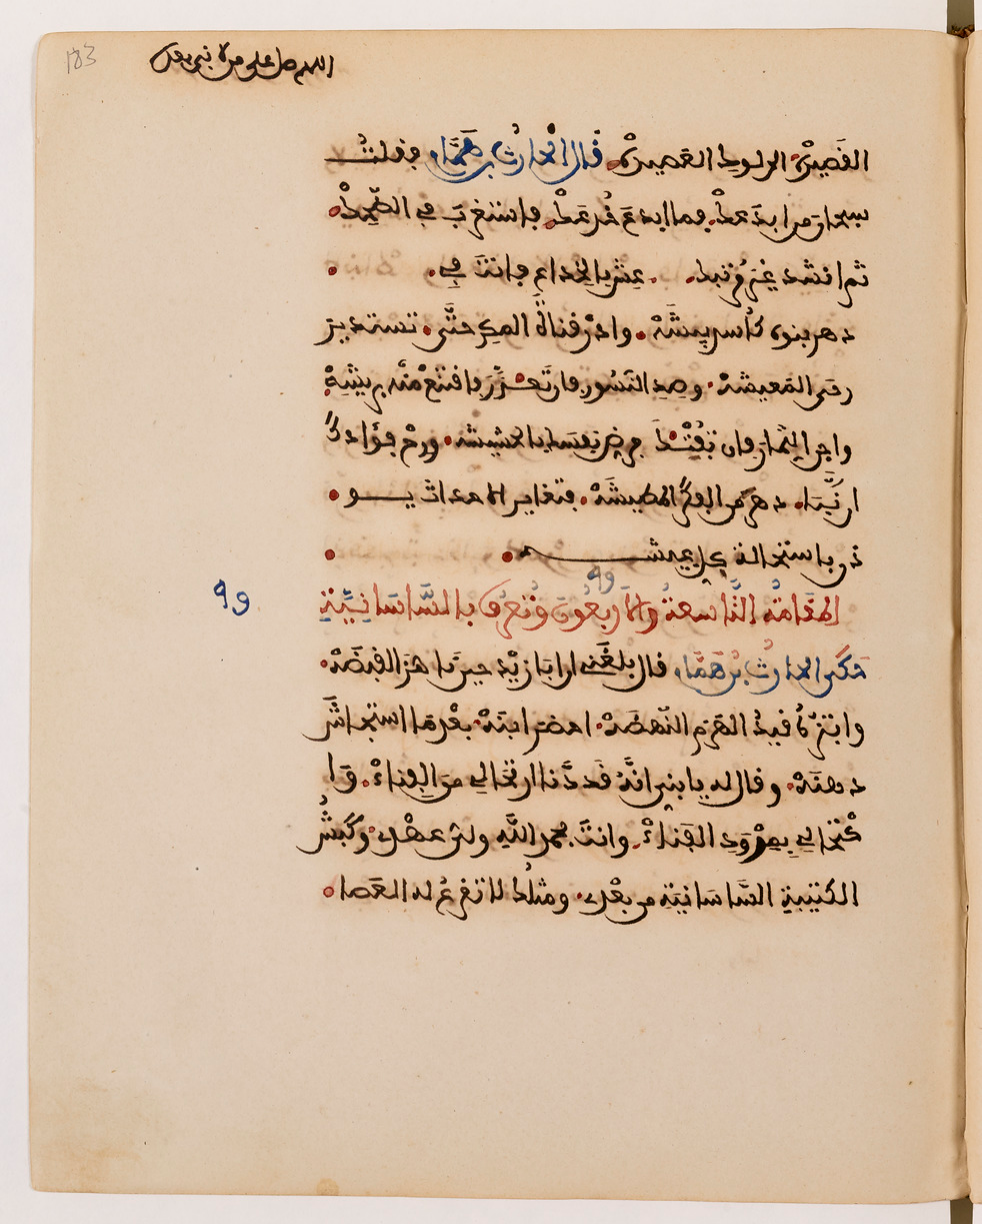 183
اللهم صل على من لا نبي بعده
القصيرة الى لوط العصيرة قال الحارث بن همام فقلت
سبحان من ابدعك فما ابدع خدعك فاستغرب في الضحك
ثم انشد غير مرتبك عش بالخداع فانت في
دهر بنوه كاسد بيشه وادر قناة المكر حتى تستدير
رحى المعيشه وصد النسور فان تعذر صيدها فاقنع بريشه
واجن الثمار فان تفتك فرض نفسك بالحشيشه وارح فؤادك
ان نبا دهر من الفكر المطيشه فتغاير الاحداث يو
ذن باستحالة كل عيشه
٤٩
المقامة التاسعة والاربعون وتعرف بالساسانية
٤٩
حكى الحارث بن همام قال بلغني ان ابا زيد حين ناهز القبضه
وابتزه قيد الهرم النهضه احضر ابنه بعدما استجاش
ذهنه وقال له يا بني انه قد دنا ارتحالي من الفناء وا
كتحالي بمرود الفناء وانت بحمد الله ولي عهدي وكبش
الكتيبة الساسانية من بعدي ومثلك لا تقرع له العصا